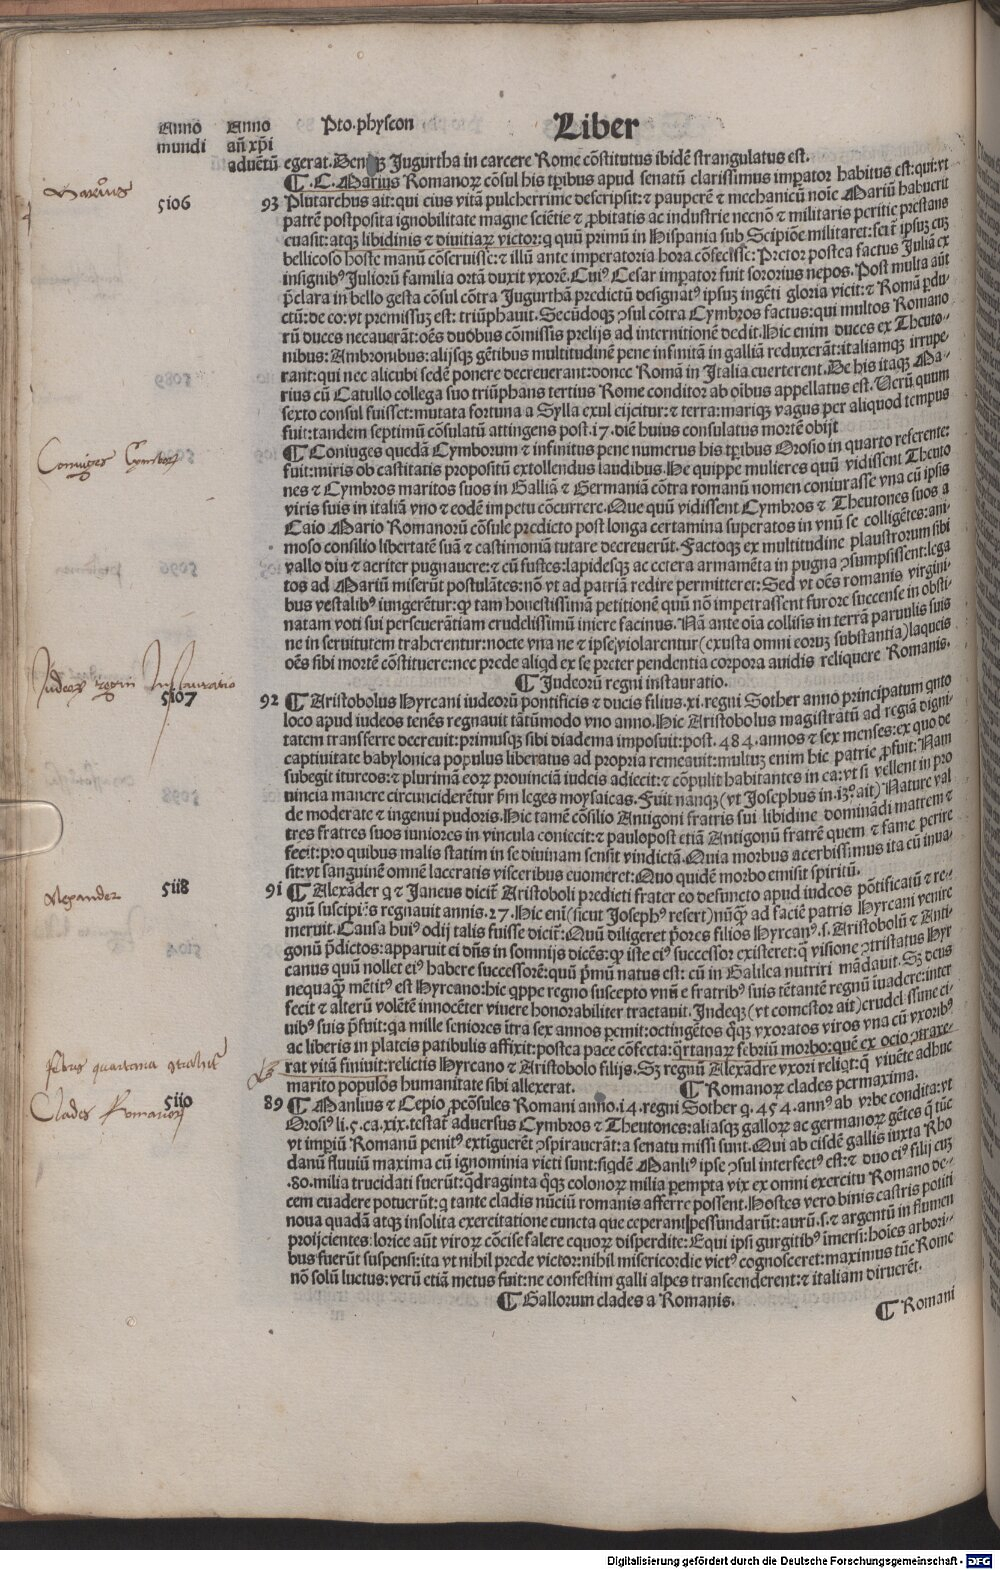 Anno Anno Pto. physcon Liber
mundi añ xp̄i
aduētū egerat. Deniqȝ Jugurtha in carcere Rome cōstitutus ibidē strangulatus est.
¶ .C. Marius Romanoꝝ cōsul his tp̄ibus apud senatū clarissimus imꝑator habitus est: qui: vt
Marius
5106 93 Plutarchus ait: qui eius vitā pulcherrime descripsit: ⁊ pauperē ⁊ mechanicū noīe Mariū habuerit
patrē postposita ignobilitate magne sciētie ⁊ ꝓbitatis ac industrie necnō ⁊ militaris peritie prestans
euasit: atqȝ libidinis ⁊ diuitiaꝝ victor: q quū primū in Hispania sub Scipiōe militaret: scīt ipsuȝ cuȝ
bellicoso hoste manū cōseruisse: ⁊ illū ante imperatoria hora cōfecisse: Pretor postea factus Juliā ex
insignibꝰ Julioꝝ familia ortā duxit vxorē. Cuiꝰ Cesar imꝑator fuit sororius nepos. Post multa aūt
p̄clara in bello gesta cōsul cōtra Jugurthā predictū designatꝰ ipsuȝ ingēti gloria vicit: ⁊ Romā ꝑdu-
ctū: de eo: vt premissuȝ est: triūphauit. Secūdoqȝ ꝯsul cōtra Cymbros factus: qui multos Romano
rū duces necauerāt: oēs duobus cōmissis prelijs ad internitionē dedit. Hic enim duces ex Theuto-
nibus: Ambronibus: alijsqȝ gētibus multitudinē pene infinitā in galliā reduxerāt: italiamqȝ irrupe-
rant: qui nec alicubi sedē ponere decreuerant: donec Romā in Italia euerterent. De his itaqȝ Ma-
rius cū Catullo collega suo triūphans tertius Rome conditor ab oībus appellatus est. Uerū quum
sexto consul fuisset: mutata fortuna a Sylla exul eijcitur: ⁊ terra: mariqȝ vagus per aliquod tempus
fuit: tandem septimū cōsulatū attingens post .17. diē huius consulatus mortē obijt
Coniuges Cymbroꝝ
¶ Coniuges quedā Cymborum ⁊ infinitus pene numerus his tp̄ibus Orosio in quarto referente:
fuit: miris ob castitatis propositū extollendus laudibus. He quippe mulieres quū vidissent Theuto
nes ⁊ Cymbros maritos suos in Galliā ⁊ Germaniā cōtra romanū nomen coniurasse vna cū ipsis
viris suis in italiā vno ⁊ eodē impetu cōcurrere. Que quū vidissent Cymbros ⁊ Theutones suos a
Caio Mario Romanorū cōsule predicto post longa certamina superatos in vnū se colligētes: ani-
moso consilio libertatē suā ⁊ castimoniā tutare decreuerūt. Factoqȝ ex multitudine plaustrorum sibi
vallo diu ⁊ acriter pugnauere: ⁊ cū fustes: lapidesqȝ ac cetera armamēta in pugna ꝯsumpsissent: lega
tos ad Mariū miserūt postulātes: nō vt ad patriā redire permitteret: Sed vt oēs romanis virgini-
bus vestalibꝰ iungerētur: ꝙ tam honestissimā petitionē quū nō impetrassent furore succense in obsti-
natam voti sui perseuerātiam crudelissimū iniere facinus. Nā ante oīa collisis in terrā paruulis suis
ne in seruitutem traherentur: nocte vna ne ⁊ ipse violarentur (exusta omni eoruȝ substantia) laqueis
oēs sibi mortē cōstituere: nec prede aliqd ex se preter pendentia corpora auidis reliquere Romanis.
Judeoꝝ regni Instauratio
¶ Judeorū regni instauratio.
5107 92 ¶ Aristobolus Hyrcani iudeorū pontificis ⁊ ducis filius .xi. regni Sother anno principatum qnto
loco apud iudeos tenēs regnauit tātūmodo vno anno. Hic Aristobolus magistratū ad regiā digni-
tatem transferre decreuit: primusqȝ sibi diadema imposuit: post .484. annos ⁊ sex menses: ex quo de
captiuitate babylonica populus liberatus ad propria remeauit: multuȝ enim hic patrie ꝓfuit: Nam
subegit itureos: ⁊ plurimā eoꝝ prouinciā iudeis adiecit: ⁊ cōpulit habitantes in ea: vt si vellent in pro
uincia manere circunciderētur ẜm leges moysaicas. Fuit nanqȝ (vt Josephus in .13.º ait) Nature val
de moderate ⁊ ingenui pudoris. Hic tamē cōsilio Antigoni fratris sui libidine dominādi matrem ⁊
tres fratres suos iuniores in vincula coniecit: ⁊ paulopost etiā Antigonū fratrē quem ⁊ fame perire
fecit: pro quibus malis statim in se diuinam sensit vindictā. Quia morbus acerbissimus ita cū inua-
sit: vt sanguinē omnē laceratis visceribus euomeret: Quo quidē morbo emisit spiritū.
Alexander
5118 91 ¶ Alexāder q ⁊ Janeus dicit̄ Aristoboli predicti frater eo defuncto apud iudeos pōtificatū ⁊ re-
gnū suscipiēs regnauit annis .27. Hic eni (sicut Josephꝰ refert) nūqȝ ad faciē patris Hyrcani venire
meruit. Causa huiꝰ odij talis fuisse dicit̄: Quū diligeret p̄ores filios Hyrcanꝰ .s. Aristobolū ⁊ Anti-
gonū p̄dictos: apparuit ei dn̄s in somnijs dicēs: ꝙ iste eiꝰ successor existeret: q̄ visione ꝯtristatus Hyr
canus quū nollet eiꝰ habere successorē: quū p̄mū natus est: cū in Galilea nutriri mādauit. Sȝ deus
nequaqȝ mētitꝰ est Hyrcano: hic q̄ppe regno suscepto vnū e fratribꝰ suis tētantē regnū īuadere: inter
fecit ⁊ alterū volētē innocēter viuere honorabiliter tractauit. Indeqȝ (vt comestor ait) crudelissime ci-
uibꝰ suis p̄fuit: q̄a mille seniores ītra sex annos ꝑemit: octingētos q̄qȝ vxoratos viros vna cū vxoribꝰ
ac liberis in plateis patibulis affixit: postea pace cōfecta: q̄rtanaꝝ febriū morbo: quē ex ocio ꝯtraxe-
febris quartana
rat vitā finiuit: relictis Hyrcano ⁊ Aristobolo filijs. Sȝ regnū Alexādre vxori reliqt: q̄ viuēte adhuc
marito populōs humanitate sibi allexerat. ¶ Romanoꝝ clades permaxima.
Clades Romanoꝝ
5110 89 ¶ Manlius ⁊ Cepio ꝓcōsules Romani anno .14. regni Sother q .454. annꝰ ab vrbe condita: vt
Orosiꝰ li. 5. ca. xix. testat̄ aduersus Cymbros ⁊ Theutones: aliasqȝ galloꝝ ac germanoꝝ gētes q̄ tūc
vt imꝑiū Romanū penitꝰ extiguerēt ꝯspirauerāt: a senatu missi sunt. Qui ab eisdē gallis iuxta Rho
danū fluuiū maxima cū ignominia victi sunt: siqdē Manliꝰ ipse ꝯsul interfectꝰ est: ⁊ duo eiꝰ filij cuȝ
.80. milia trucidati fuerūt: q̄draginta q̄qȝ colonoꝝ milia ꝑempta vix ex omni exercitu Romano de-
cem euadere potuerūt: q tante cladis nūciū romanis afferre possent. Hostes vero binis castris potiti
noua quadā atqȝ insolita exercitatione cuncta que ceperant pessundarūt: aurū .s. ⁊ argentū in flumen
proijcientes: lorice aūt viroꝝ cōcise falere equoꝝ disperdite: Equi ipsi gurgitibꝰ īmersi: hoīes arbori-
bus fuerūt suspensi: ita vt nihil prede victor: nihil misericordie victꝰ cognosceret: maximus tūc Rome
nō solū luctus: verū etiā metus fuit: ne confestim galli alpes transcenderent: ⁊ italiam diruerēt.
¶ Gallorum clades a Romanis.
¶ Romani
Digitalisierung gefördert durch die Deutsche Forschungsgemeinschaft - DFG